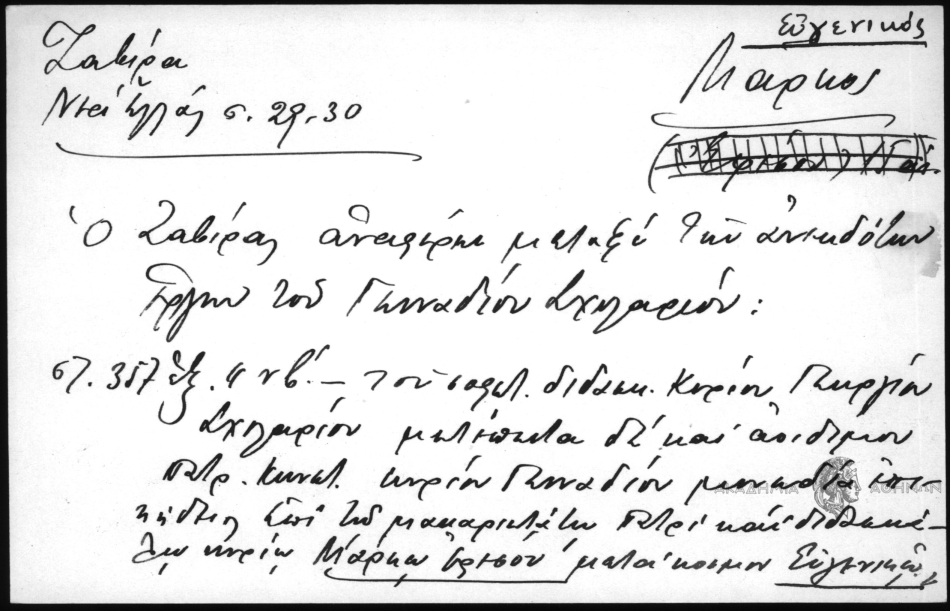 Ζαβίρα
Νέα Ἑλλάς σ. 29-30
Εὐγενικός
Μάρκος
Ὁ Ζαβίρας ἀναφέρει μεταξύ τῶν ἀνεκδότων
ἔργων τοῦ Γενναδίου Σχολαρίου:
σ. 357 ἑξ. — τοῦ σοφωτ. διδασκ. Κυρίου Γεωργίου
Σχολαρίου μετέπειτα δέ καί ἀοιδίμου
Πατρ. Κωνστ. κυρίου Γενναδίου μονωδία ἐπι-
κήδειος ἐπί τῷ μακαριωτάτῳ Πατρί καί διδασκά-
λῳ κυρίῳ Μάρκῳ Ἐφέσου μετά κόσμον Εὐγενικῷ
ΑΚΑΔΗΜΙΑ ΑΘΗΝΩΝ